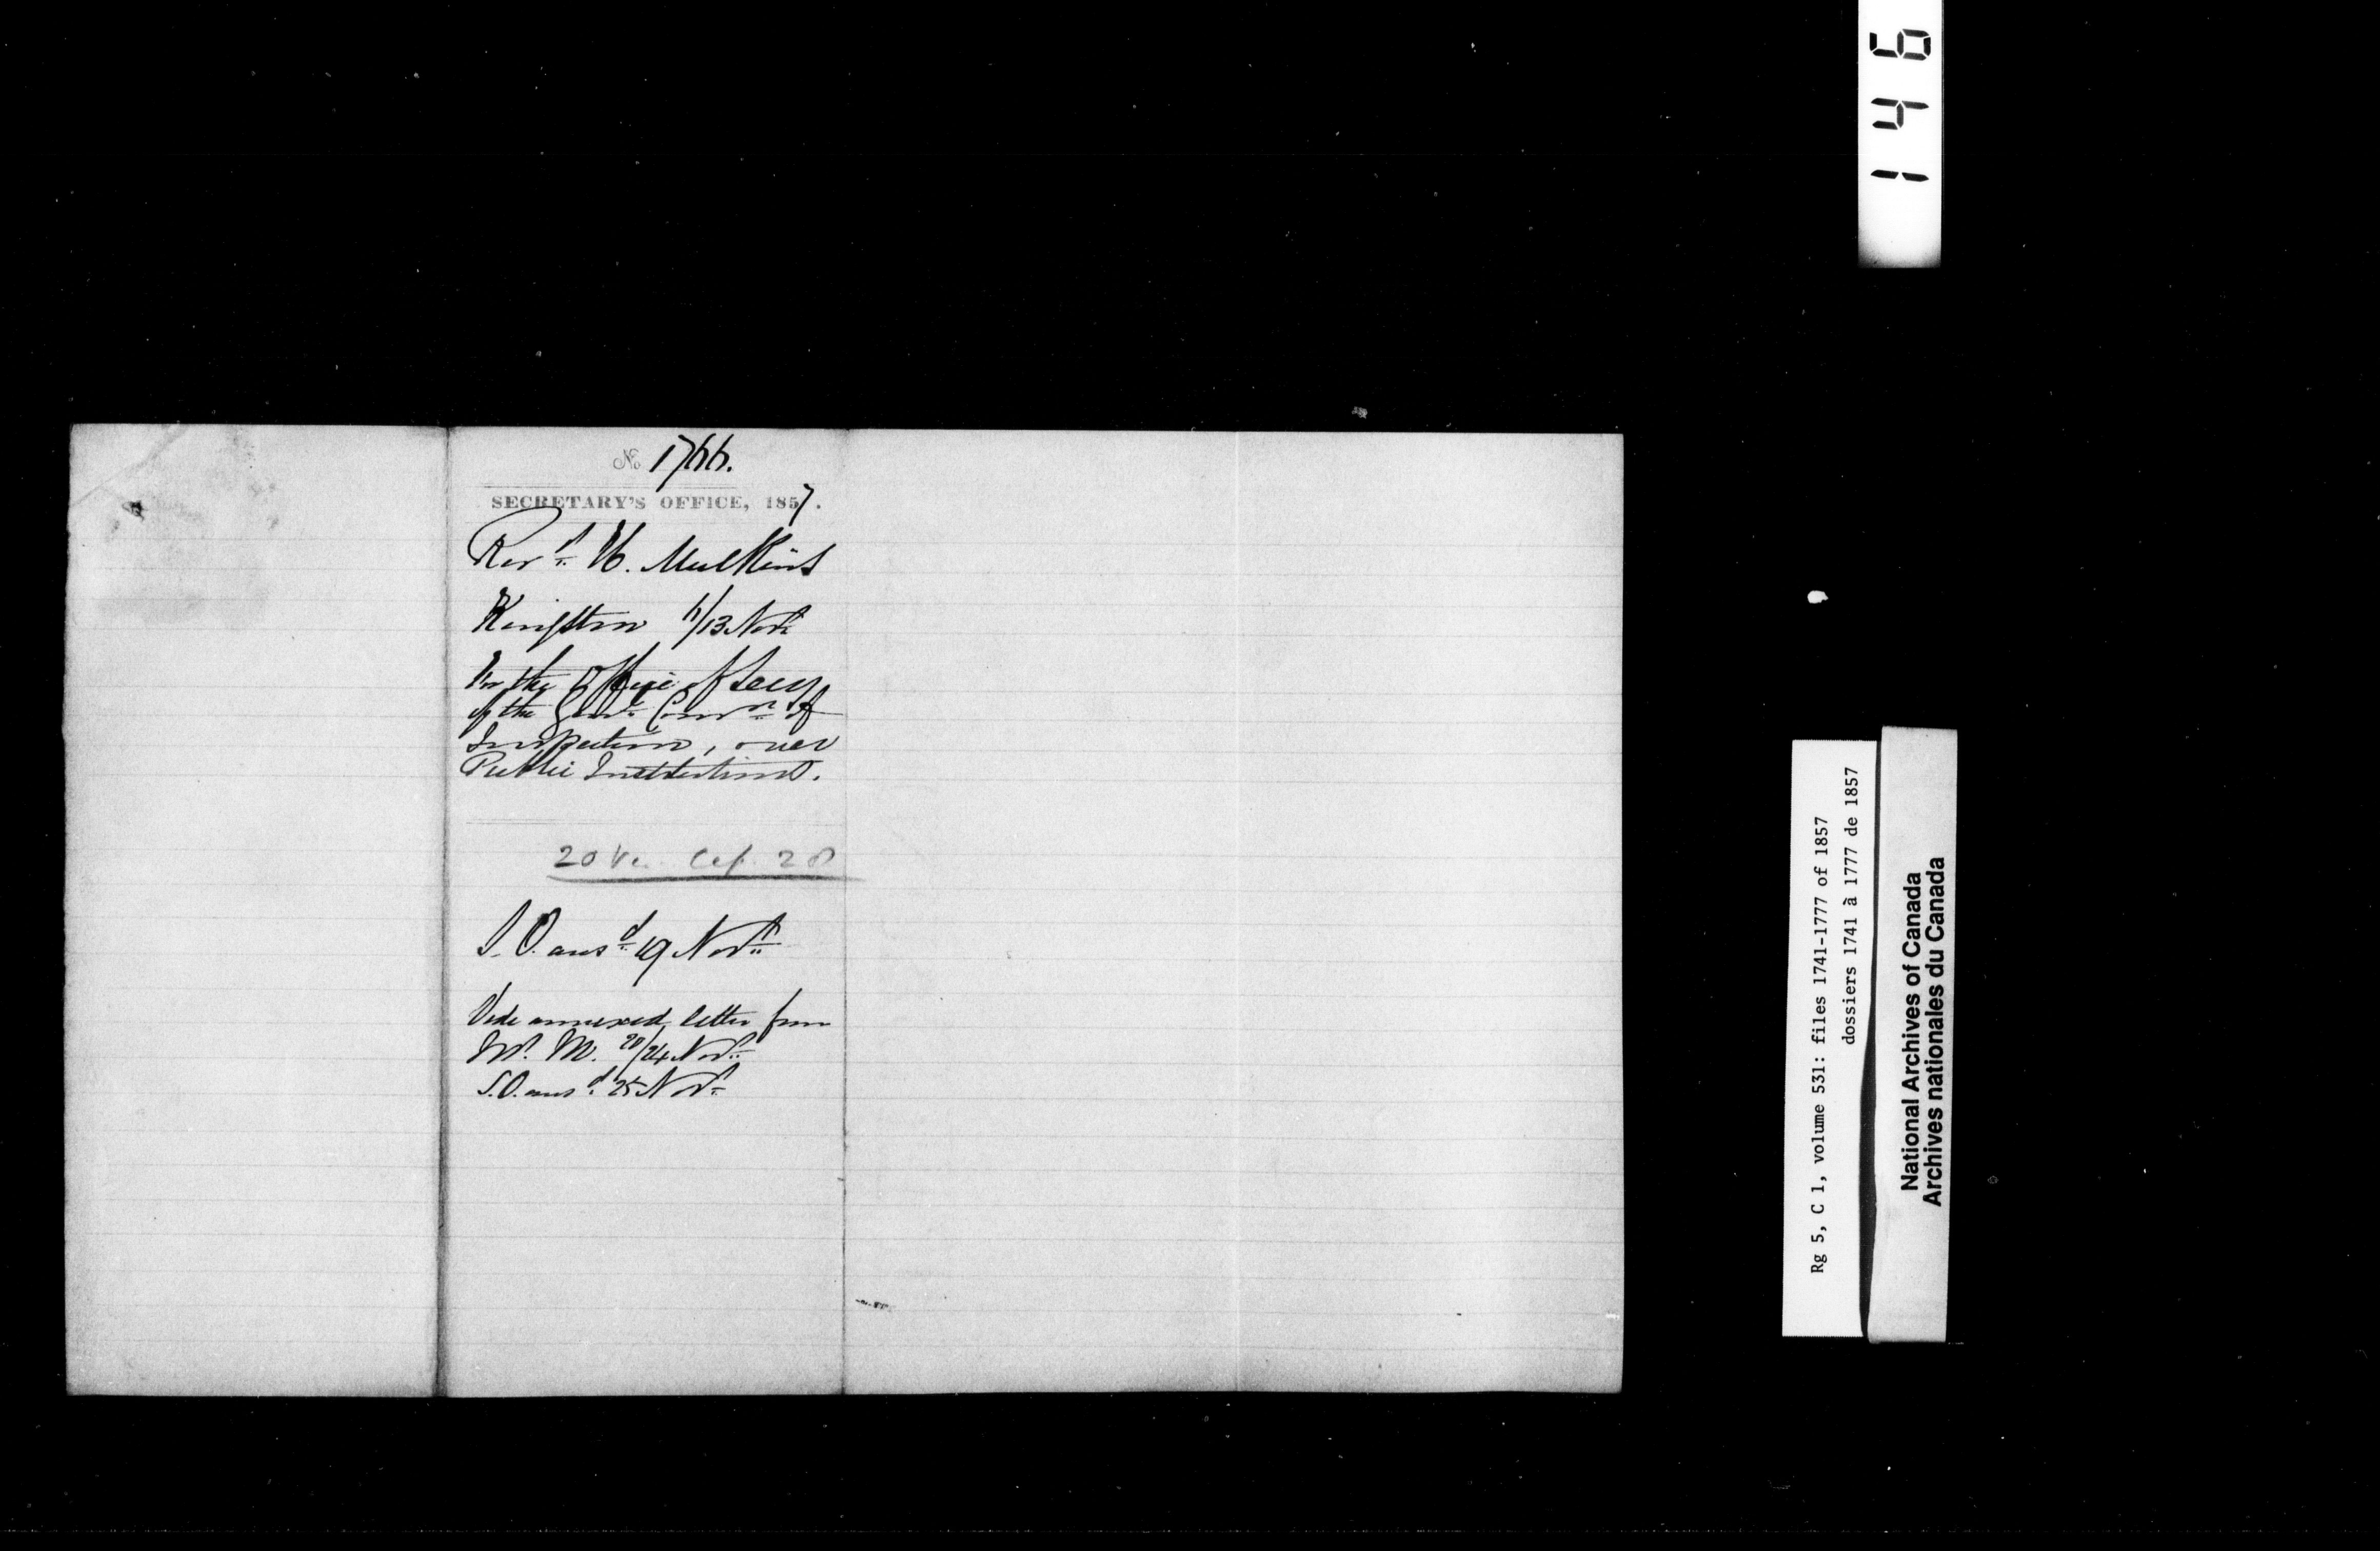 No 1766.
SECRETARY'S OFFICE, 1857.
Revd H. Mulkins
Kingston 11/13 Novr
For the Office of Secy
of the Govt Commn of
Inspection, over
Public Institutions.
20 Vic Cap 28
S.O. ansd 19 Novr
Vide annexed letter from
Mr. M. 20/24 Novr
S.O. ansd 25 Novr
146
Rg 5, C 1, volume 531: files 1741-1777 of 1857
dossiers 1741 à 1777 de 1857
National Archives of Canada
Archives nationales du Canada